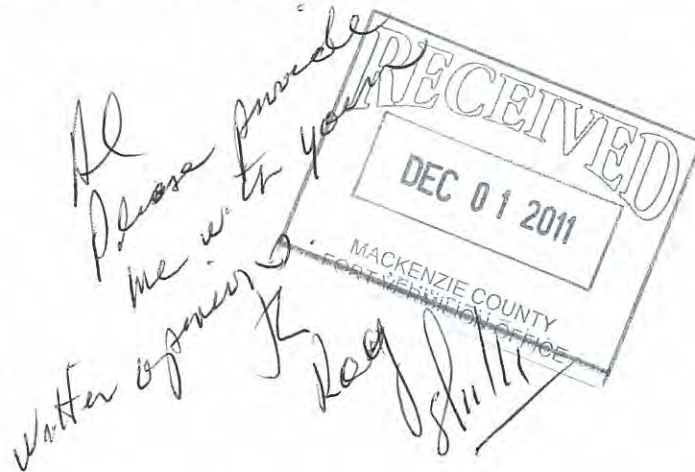 Al
Please provide
me with your
written opinion.
RECEIVED
DEC 01 2011
MACKENZIE COUNTY
FORT VERMILION OFFICE